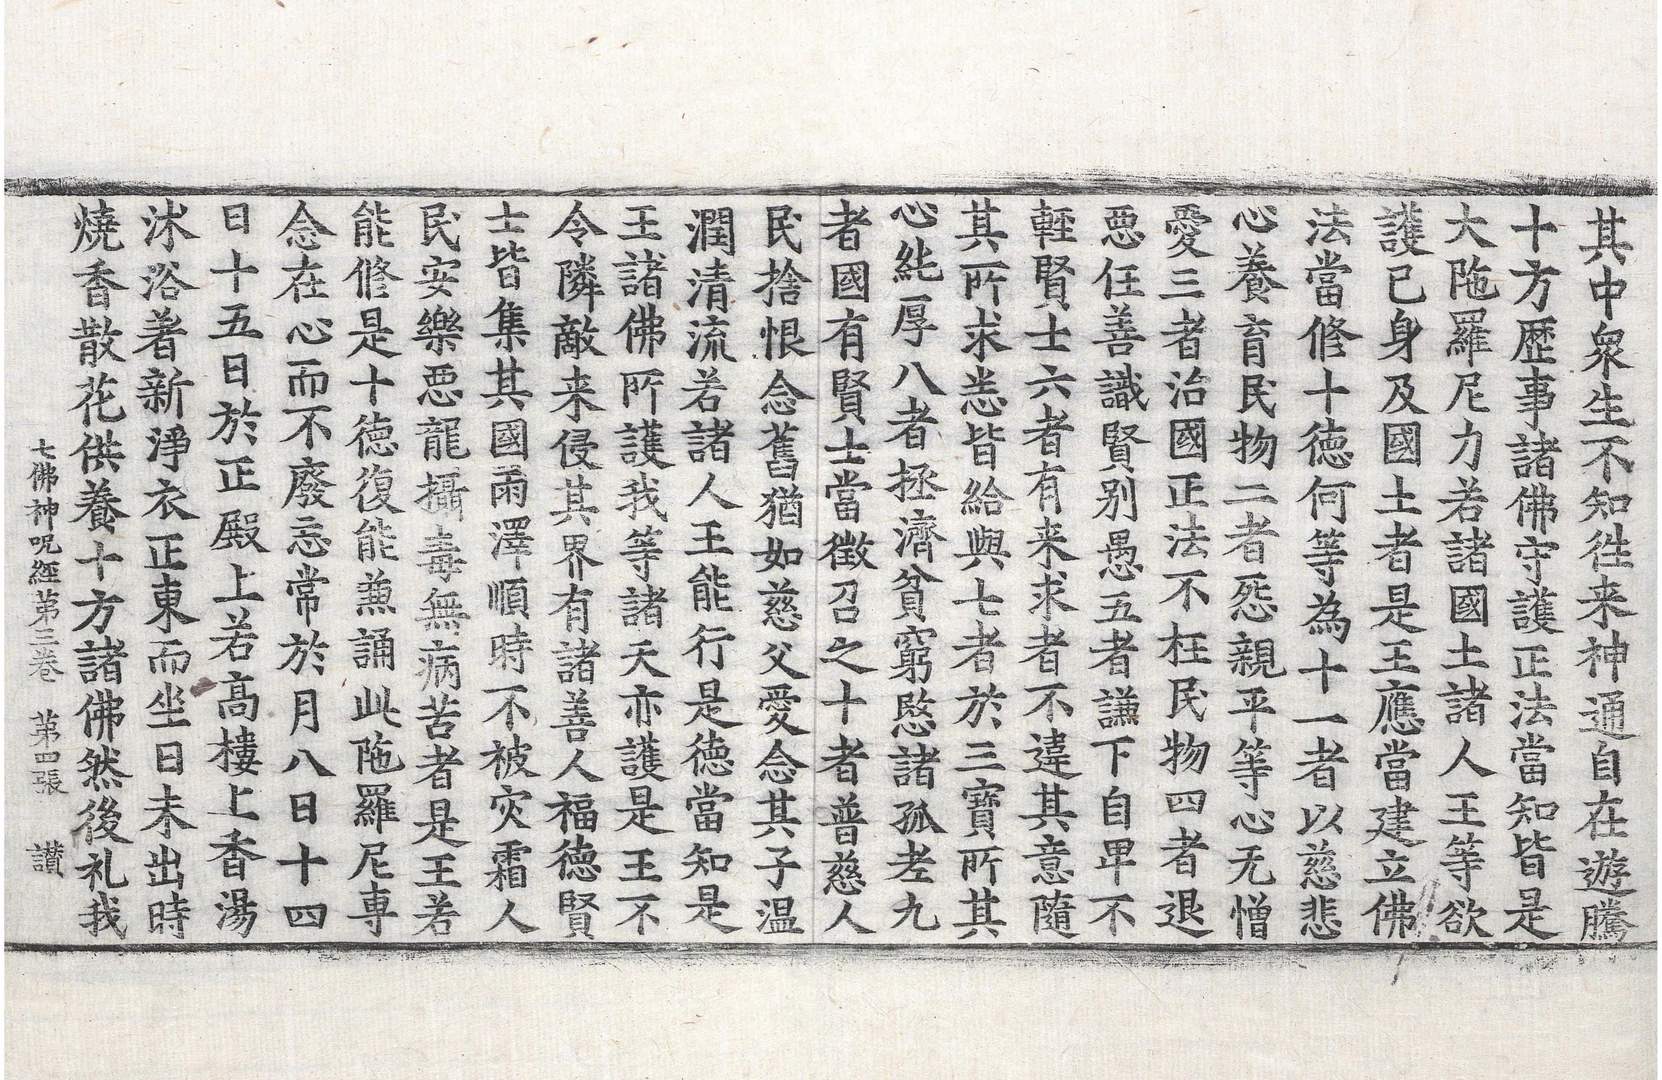 其中衆生不知徃来神通自在遊騰
十方歷事諸佛守護正法當知皆是
大陁羅尼力若諸國土諸人王等欲
護已身及國土者是王應當建立佛
法當修十德何等為十一者以慈悲
心養育民物二者怨親平等心无憎
愛三者治國正法不枉民物四者退
惡任善識賢別愚五者謙下自卑不
輕賢士六者有来求者不違其意隨
其所求悉皆給與七者於三寶所其
心純厚八者拯濟貧窮愍諸孤老九
者國有賢士當徵召之十者普慈人
民捨恨念舊猶如慈父愛念其子温
潤清流若諸人王能行是德當知是
王諸佛所護我等諸天亦護是王不
令隣敵来侵其界有諸善人福德賢
士皆集其國雨澤順時不被灾霜人
民安樂惡龍攝毒無病苦者是王若
能修是十德復能兼誦此陁羅尼專
念在心而不廢忘常於月八日十四
日十五日於正殿上若高樓上香湯
沐浴著新淨衣正東而坐日未出時
燒香散花供養十方諸佛然後礼我
七佛神呪經第三卷　第四張　讃